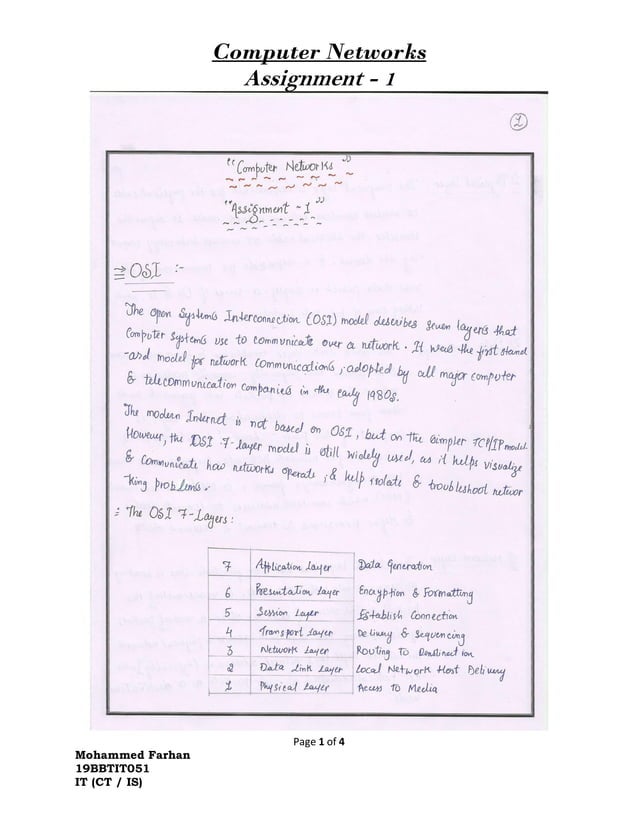 Computer Networks
Assignment - 1
1
"Computer Networks"
"Assignment - 1"
⇒ OSI :-
The open Systems Interconnection (OSI) model describes seven layers that
Computer Systems use to communicate over a network. It was the first stand
-ard model for network communications, adopted by all major computer
& telecommunication companies in the early 1980s.
The modern Internet is not based on OSI, but on the simpler TCP/IP model.
However, the OSI 7-layer model is still widely used, as it helps visualize
& communicate how networks operate, & help isolate & troubleshoot networ
-king problems.
: The OSI 7-Layers :
7 Application Layer Data Generation
6 Presentation Layer Encryption & Formatting
5 Session Layer Establish Connection
4 Transport Layer Delivery & Sequencing
3 Network Layer Routing To
2 Data Link Layer Local Network Host Delivery
1 Physical Layer Access To Media
Page 1 of 4
Mohammed Farhan
19BBTIT051
IT (CT / IS)